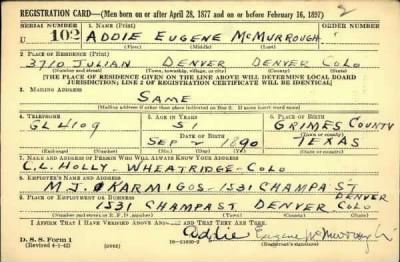 REGISTRATION CARD—(Men born on or after April 28, 1877 and on or before February 16, 1897) 2
SERIAL NUMBER 1. NAME (Print) ORDER NUMBER
U 102 ADDIE EUGENE McMURROUGH
(First) (Middle) (Last)
2. PLACE OF RESIDENCE (Print)
3710 JULIAN DENVER DENVER COLO
(Number and street) (Town, township, village, or city) (County) (State)
[THE PLACE OF RESIDENCE GIVEN ON THE LINE ABOVE WILL DETERMINE LOCAL BOARD
JURISDICTION; LINE 2 OF REGISTRATION CERTIFICATE WILL BE IDENTICAL]
3. MAILING ADDRESS
SAME
[Mailing address if other than place indicated on line 2. If same insert word same]
4. TELEPHONE 5. AGE IN YEARS 6. PLACE OF BIRTH
GL 4109 51 GRIMES COUNTY
DATE OF BIRTH (Town or county)
SEP 2 1890 TEXAS
(Exchange) (Number) (Mo.) (Day) (Yr.) (State or country)
7. NAME AND ADDRESS OF PERSON WHO WILL ALWAYS KNOW YOUR ADDRESS
C.L. HOLLY WHEATRIDGE - COLO
8. EMPLOYER'S NAME AND ADDRESS
M.J. KARMIGOS - 1531 CHAMPA ST
DENVER
9. PLACE OF EMPLOYMENT OR BUSINESS
1531 CHAMPA ST DENVER COLO
(Number and street or R. F. D. number) (Town) (County) (State)
I AFFIRM THAT I HAVE VERIFIED ABOVE ANSWERS AND THAT THEY ARE TRUE.
D. S. S. Form 1
(Revised 4-1-42) (over) 16—21630-2 Addie Eugene McMurrough
(Registrant's signature)